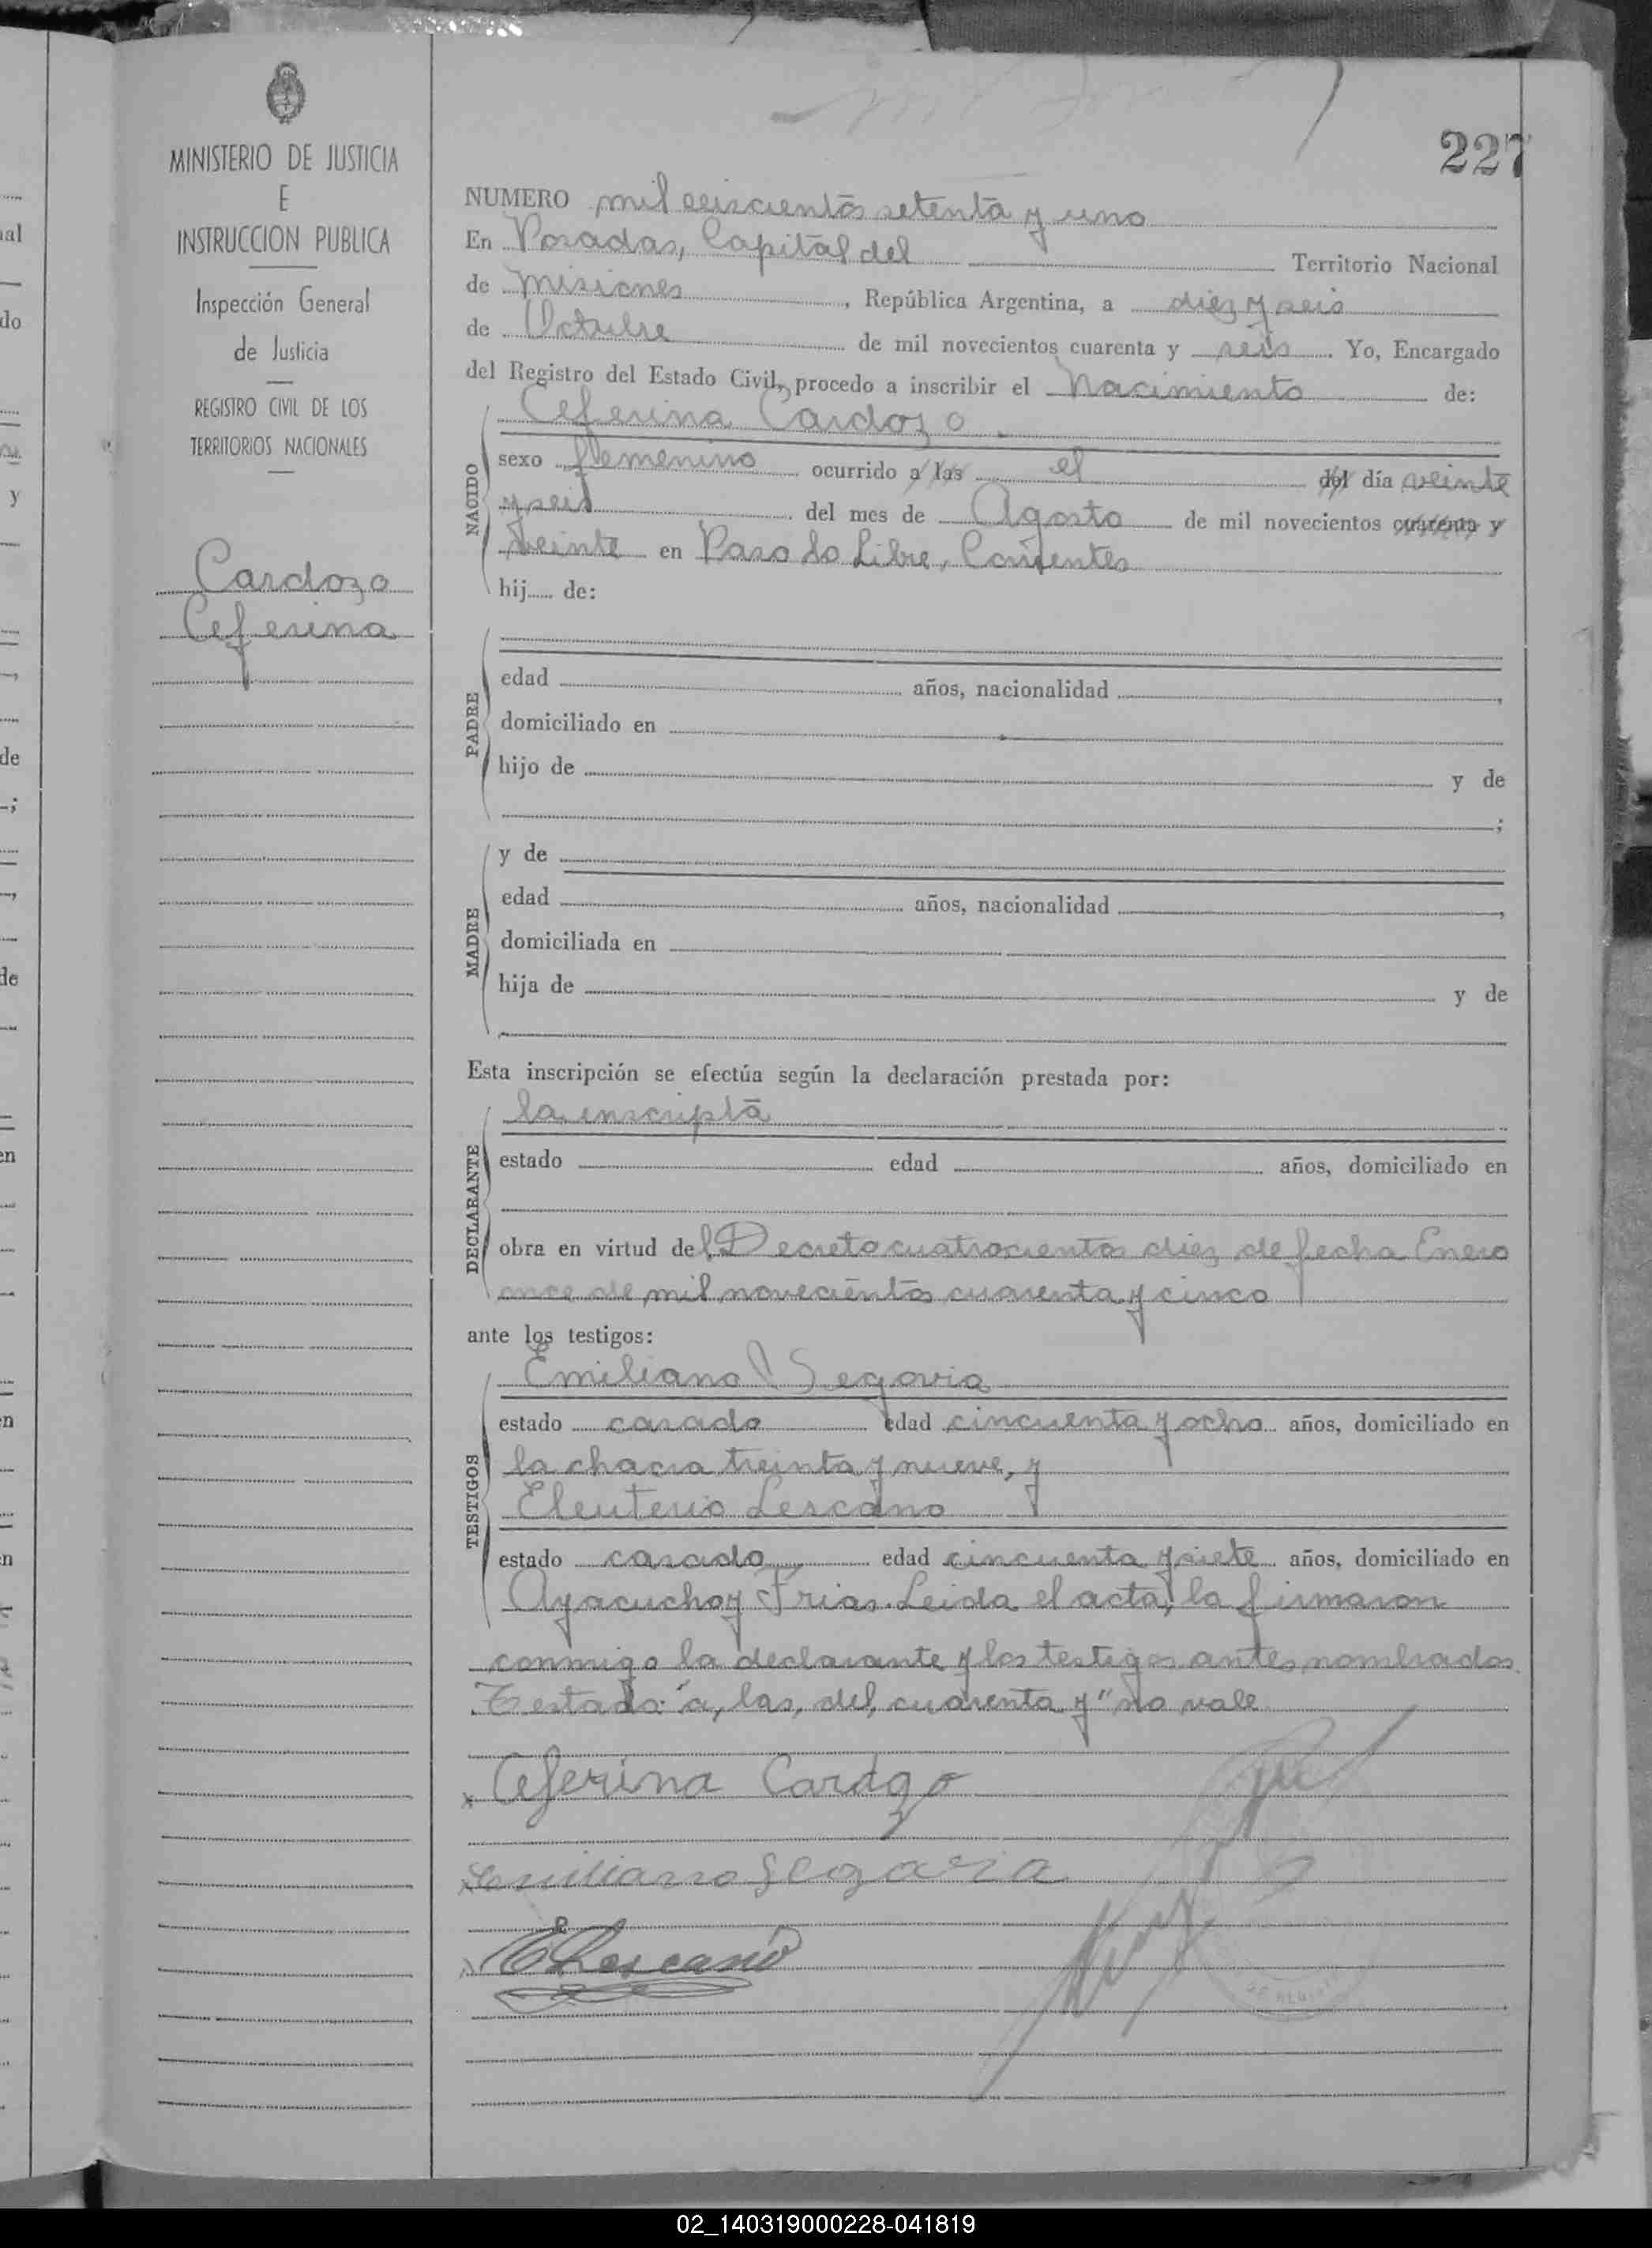 227
MINISTERIO DE JUSTICIA
E
INSTRUCCION PUBLICA
Inspección General
de Justicia
REGISTRO CIVIL DE LOS
TERRITORIOS NACIONALES
Cardozo
Ceferina
NUMERO mil seiscientos setenta y uno
En Posadas, Capital del Territorio Nacional
de Misiones, República Argentina, a diez y seis
de Octubre de mil novecientos cuarenta y seis. Yo, Encargado
del Registro del Estado Civil, procedo a inscribir el Nacimiento de:
Ceferina Cardozo
NACIDO
sexo femenino ocurrido a las el del día veinte
y seis del mes de Agosto de mil novecientos cuarenta y
veinte en Paso Lo Libre, Corrientes
hij..... de:
PADRE
edad años, nacionalidad ,
domiciliado en
hijo de y de
;
MADRE
y de
edad años, nacionalidad ,
domiciliada en
hija de y de
Esta inscripción se efectúa según la declaración prestada por:
la inscripta
DECLARANTE
estado edad años, domiciliado en
obra en virtud del Decreto cuatrocientos diez de fecha Enero
once de mil novecientos cuarenta y cinco
ante los testigos:
Emiliano Segovia
TESTIGOS
estado casado edad cincuenta y ocho años, domiciliado en
la chacra treinta y nueve, y
Eleuterio Lescano
estado casado, edad cincuenta y siete años, domiciliado en
Ayacucho y Frias. Leida el acta, la firmaron
conmigo la declarante y los testigos antes nombrados.
Testado: "a, las, del, cuarenta y" no vale
x Ceferina Cardozo
x Emiliano Segovia
x E Lescano
02_140319000228-041819